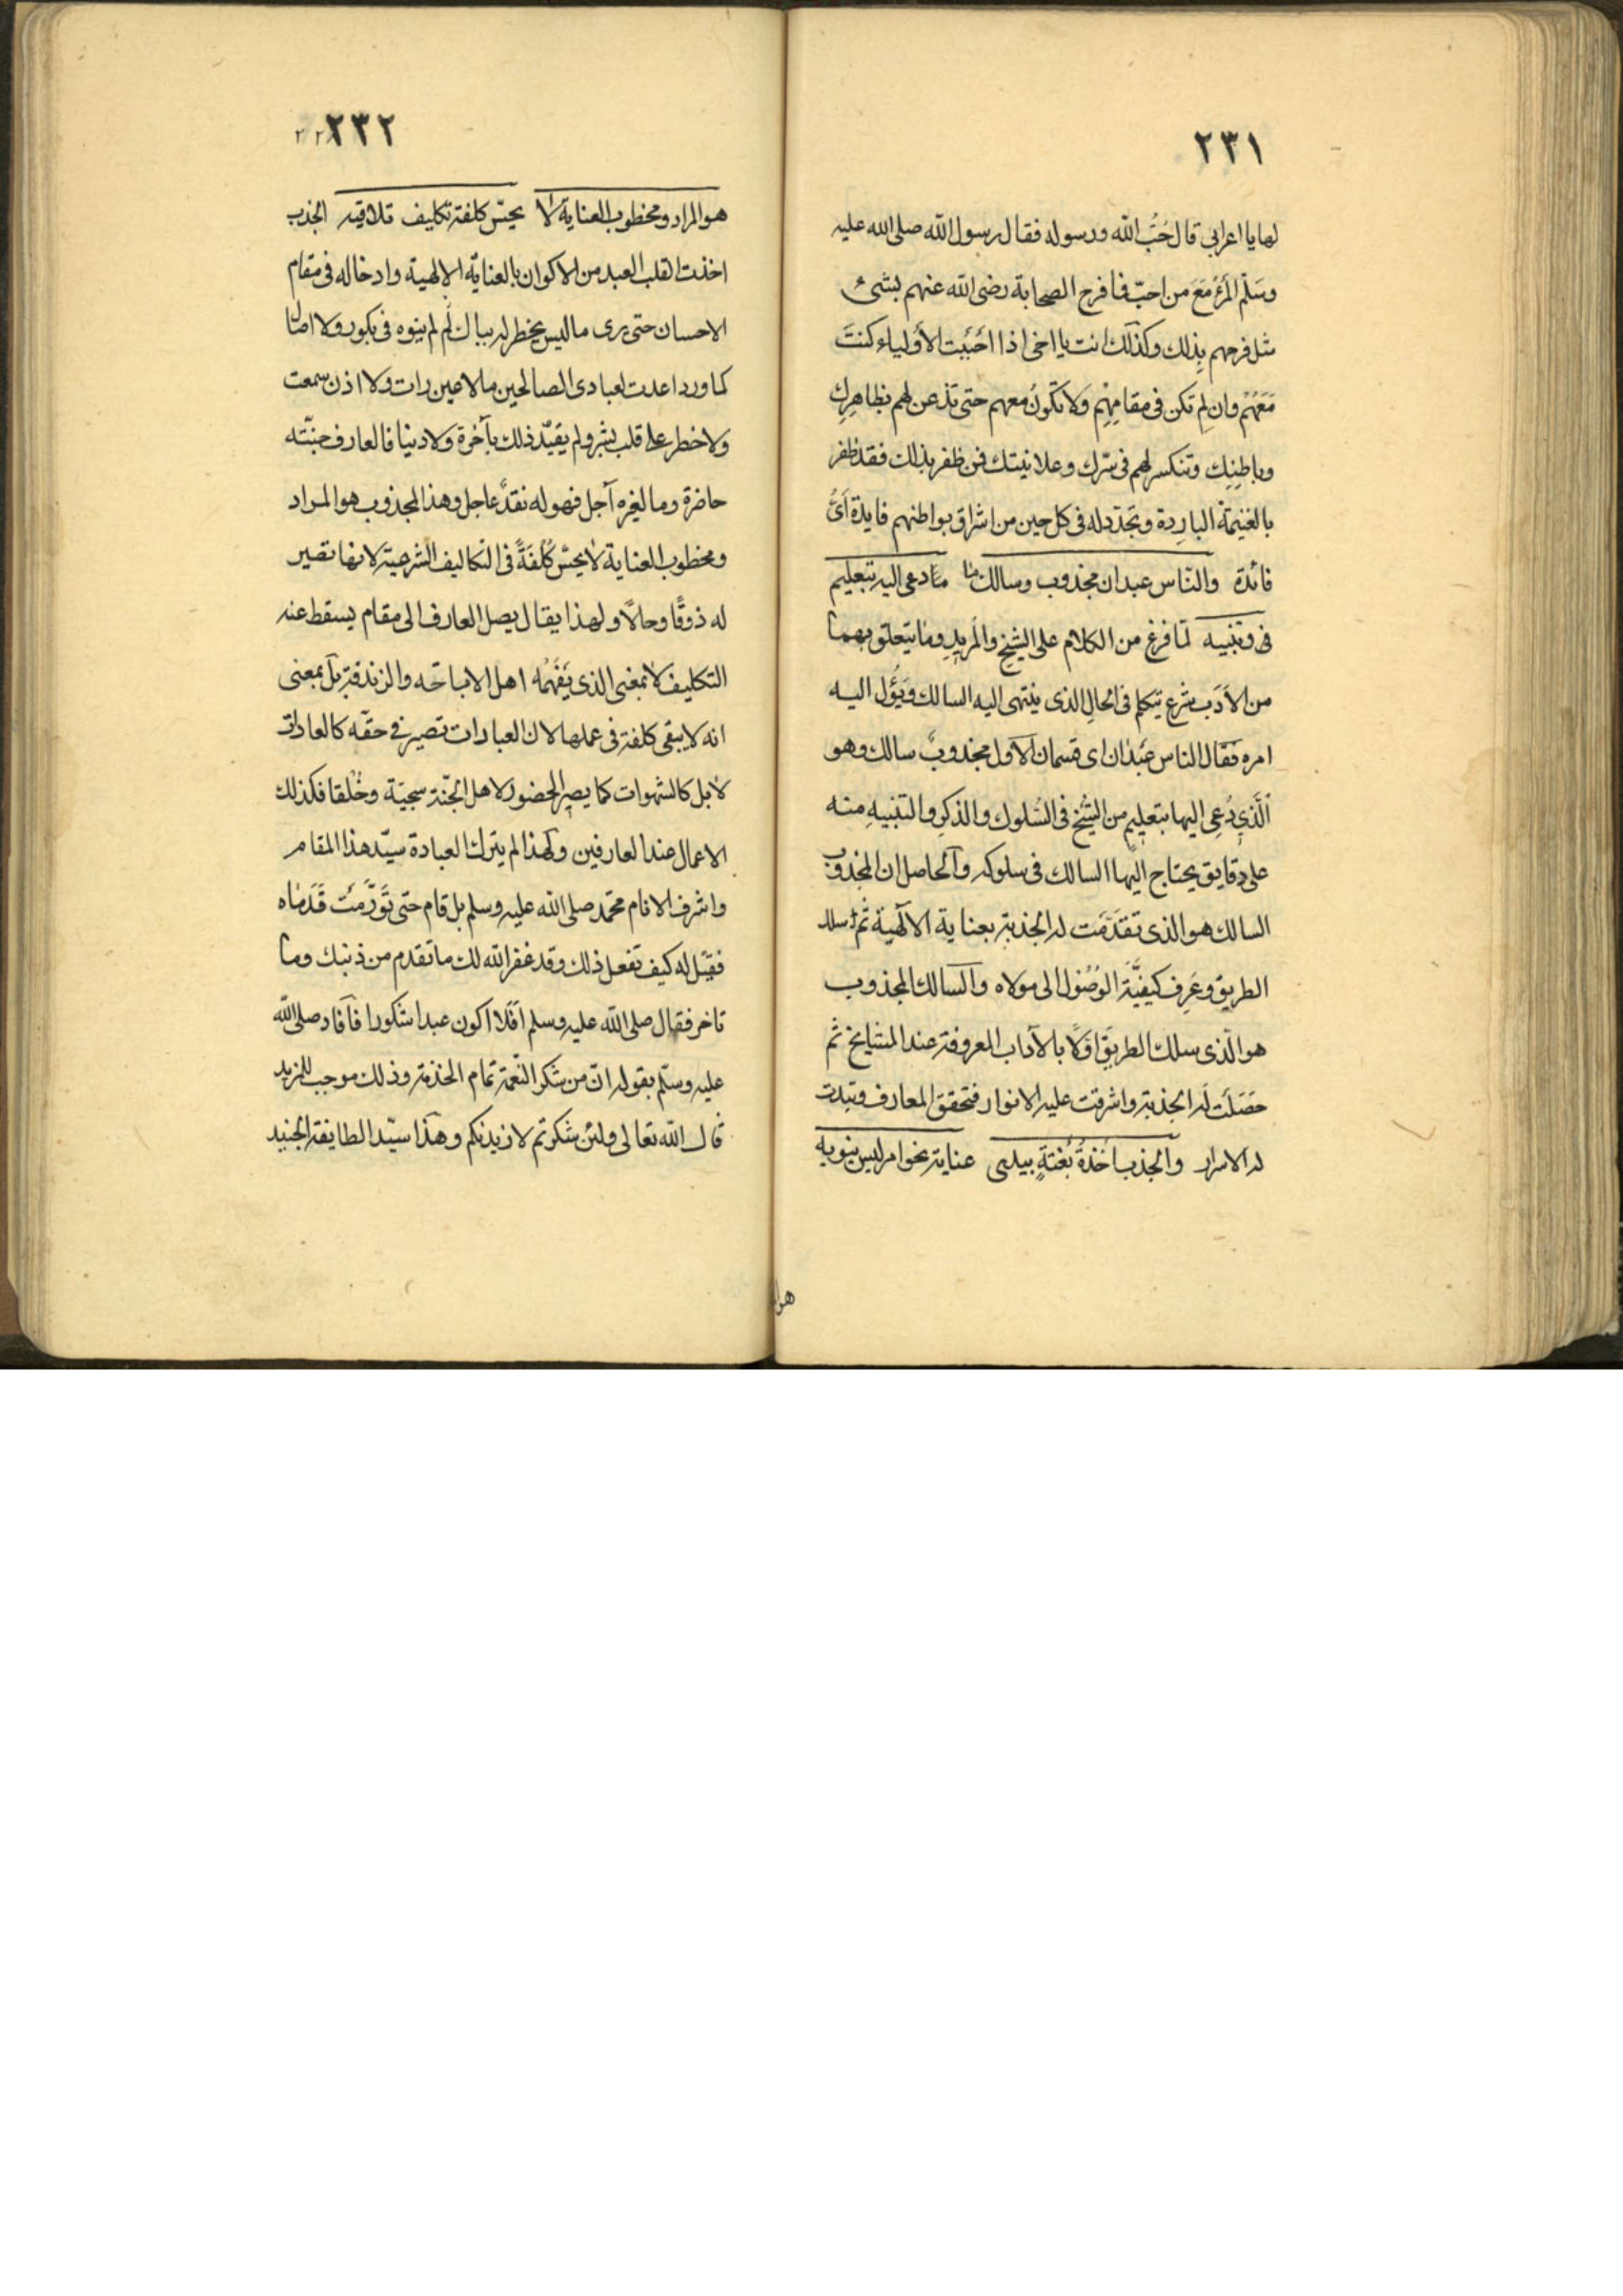 ٢٣١
لها يا اعرابي قال حُبُّ الله ورسوله فقال رسول الله صلى الله عليه
وسَلّم المرءُ مَعَ من احبّ فما فرح الصحابة رضى الله عنهم بشئ
مثل فرحهم بِذلك وكذلك انت يا اخى اذا احْبَبت الأولياء كنتَ
مَعَهُمْ وان لم تكن فى مقامِهِم ولا تكونُ معهم حتى تذعن لهم بظاهِرِك
وباطِنِك وتنكسر لهم فى سّرك وعلانيتك فمن ظفر بذلك فقد ظفر
بالغنيمة البارِدة وتجدّد له فى كل حين من اشراق بواطنهم فايدة أىُّ
فائدة والناس عبدان مجذوب وسالك ما دعى اليه بتعليم
فى وتنبيه لما فرغ من الكلام على الشيخ والمريدِ وما يتعلق بهما
من الأدَب شرع يتكلم فى الحالِ الذى ينتهى اليه السالك ويَؤُل اليه
امره فقال الناس عَبْدان اى قسمان الأول مجذوبٌ سالك وهو
الَّذي دُعِى اليها بتعليمٍ من الشيخ فى السُلوك والذكرِ والتنبيهِ منه
على دقايق يحتاج اليها السالك فى سلوكه والحاصل ان المجذوب
السالك هو الذى تقدّمَت له الجذبة بعناية الآلهية ثم سلك
الطريق وعَرِف كيفيَّة الوُصُول الى مولاه والسالك المجذوب
هو الّذى سلك الطريق اوّلًا بالآداب المعروفة عند المشايخ ثم
حَصَلَت لَه الجذبة واشرقت عليه الانوار فتحقق المعارف وتبدت
له الاسرار والجذب اخْذةُ بغْتةٍ بيدى عناية نحو امر ليس ينويه
هو
٢٣٢
هو المراد ومخطوب العناية لا يحسّ كلفة تكليف تلاقيه الجذب
اخذت القلب العبد من الاكوان بالعنايّه الالهية وادخاله فى مقام
الاحسان حتى يرى ما ليس يخطر له ببال لم ينوه فى بكور ولا اصال
كما ورد اعدت لعبادى الصالحين ما لا عين رات ولا اذن سمعت
ولا خطر على قلب بشر ولم يقيّد ذلك بآخرة ولا دنيا فالعارف جنّته
حاضرة وما لغيره آجل فهو له نقدٌ عاجل وهذا المجذوب هو المراد
ومخطوب العناية لا يحسّ كُلفَةً فى التكاليف الشرعية لانها تصير
له ذوقًا وحالًا ولهذا يقال يصل العارف الى مقام يسقط عنه
التكليف لا بمعنى الذى يَفْهَمُه اهل الاباحه والزندقة بل بمعنى
انه لا يبقى كلفة فى عملها لان العبادات تصير فى حقّه كالعادات
لا بل كالشهوات كما يصير الحضور لاهل الجنّة سجيّة وخُلقا فكذلك
الاعمال عند العارفين ولهذا لم يترك العبادة سيّد هذا المقام
واشرف الانام محمّد صلى الله عليه وسلم بل قام حتى تورّمت قدماه
فقيل له كيف تفعل ذلك وقد غفر الله لك ما تقدم من ذنبك وما
تاخر فقال صلى الله عليه وسلم أفلا اكون عبدا شكورا فآفاد صلى الله
عليه وسلّم بقوله انّ من شكر النّعمة تمام الخذمة وذلك موجب للمزيد
قال الله تعالى ولئن شكرتم لازيدنكم وهذا سيّد الطايفة الجنيد